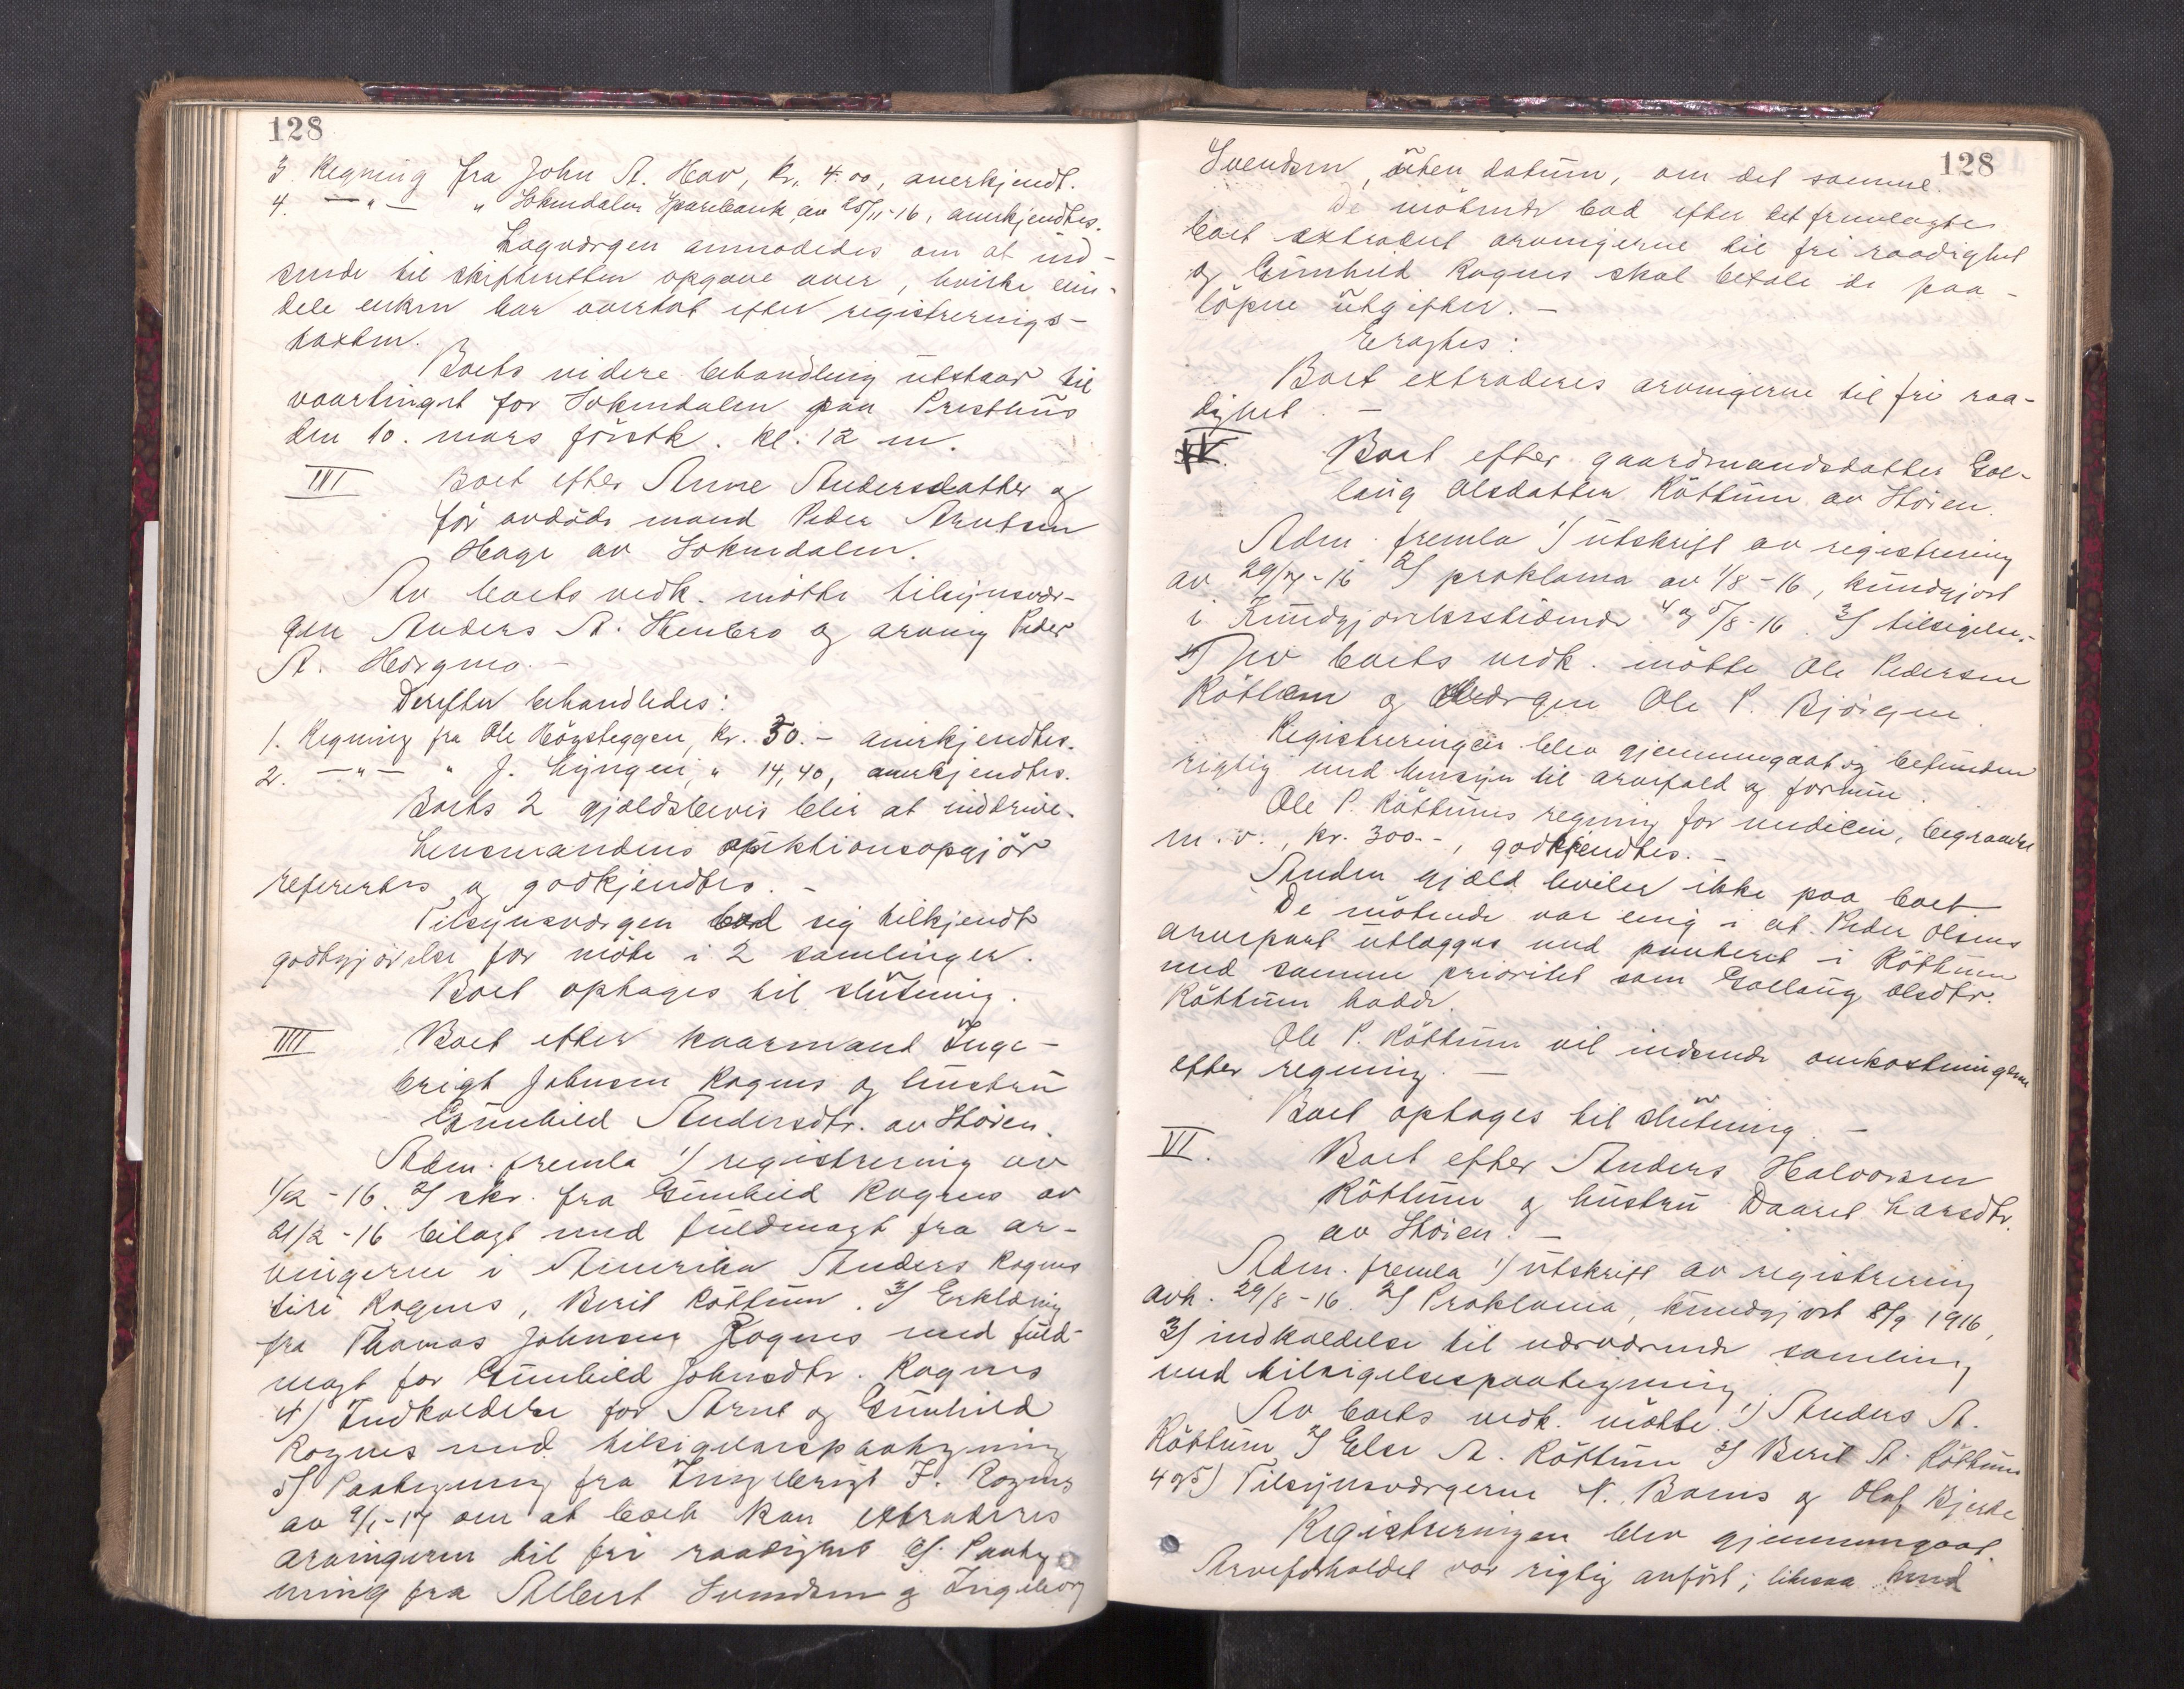 128
3. Regning fra John A. Hov, kr. 4.00, anerkjendt.
4. —"— " Soknedalen Sparebank av 25/11-16, anerkjendtes.
Lagvergen anmodedes om at ind-
sende til skifteretten opgave over, hvilke ein-
dele enken har overtat efter registrerings-
taxten.
Boets videre behandling utstaar til
vaartinget for Soknedalen paa Presthus
den 10. mars förstk. kl. 12 m.
III Boet efter Anne Andersdatter og
før avdøde mand Peder Arntsen
Hage av Soknedalen.
Av boets vedk. mötte tilsynsvær-
gen Anders A. Stenbro og arving Peder
A. Horgmo. —
Derefter behandledes:
1. Regning fra Ole Högsteggen, kr. 30.— anerkjendtes.
2. —"— " J. Lyngen, " 14,40, anerkjendtes.
Boets 2 gjældsbevis blir at inddrive.
Lensmandens auktionsopgjör
refereres og godkjendtes. —
Tilsynsvergen bad sig tilkjendt
godtgjörelse for möte i 2 samlinger.
Boet optages til slutning.
IIII Boet efter kaarmand Inge-
brigt Johnsen Rognes og hustru
Gunhild Andersdtr. av Stören.
Adm. fremla 1) registrering av
1/2-16. 2) skr. fra Gunhild Rognes av
21/2-16 bilagt med fuldmagt fra ar-
vingerne i Amerika Anders Rognes
Siri Rognes, Berit Röttum. 3) Erklæring
fra Thomas Johnsen Rognes med fuld-
magt for Gunhild Johnsdtr. Rognes
4) Indkaldelse for Arnt og Gunhild
Rognes med tilsigelsespaategning
5) Paategning fra Ingebrigt J. Rognes
av 9/1-17 om at boet kan extraderes
arvingerne til fri raadighet 6) Paateg-
ning fra Albert Svendsen og Ingeborg
128
Svendsen, uten datum, om det samme.
De mötende bad efter det fremlagte
boet extradert arvingerne til fri raadighet
og Gunhild Rognes skal betale de paa-
löpne utgifter. —
Eragtes:
Boet extraderes arvingerne til fri raa-
dighet. —
V. Boet efter gaardmandsdatter Gol-
laug Olsdatter Röttum av Stören.
Adm. fremla 1) utskrift av registrering
av 29/7-16 2) proklama av 1/8-16, kundgjort
i Kundgjörelsestidende 4 og 5/8-16. 3) tilsigelse.
Av boets vedk. mötte Ole Pedersen
Röttum og Vergen Ole P. Bjørgen.
Registreringen blev gjennemgaat og befunden
rigtig med hensyn til arvefald og formue.
Ole P. Röttums regning for medicin, begravelse
m. v., kr. 300.—, godkjendtes. —
Anden gjæld hviler ikke paa boet.
De mötende var enig i at Peder Olsens
arvepart utlægges med panteret i Röttum
med samme prioritet som Gollaug Olsdtr.
Röttum hadde.
Ole P. Röttum vil indsende omkostningerne
efter regning. —
Boet optages til slutning. —
VI. Boet efter Anders Halvorsen
Röttum og hustru Daaret Larsdtr.
av Stören. —
Adm. fremla 1) utskrift av registrering
avh. 29/8-16. 2) Proklama, kundgjort 8/9 1916,
3) indkaldelse til nærværende samling
med tilsigelsespaategning.
Av boets vedk. mötte 1) Anders A.
Röttum 2) Else A. Röttum 3) Berit A. Röttum
4 og 5) Tilsynsvergerne N. Bones og Olaf Bjerke
Registreringen blev gjennemgaat.
Arveforholdet var rigtig anfört; likesaa med